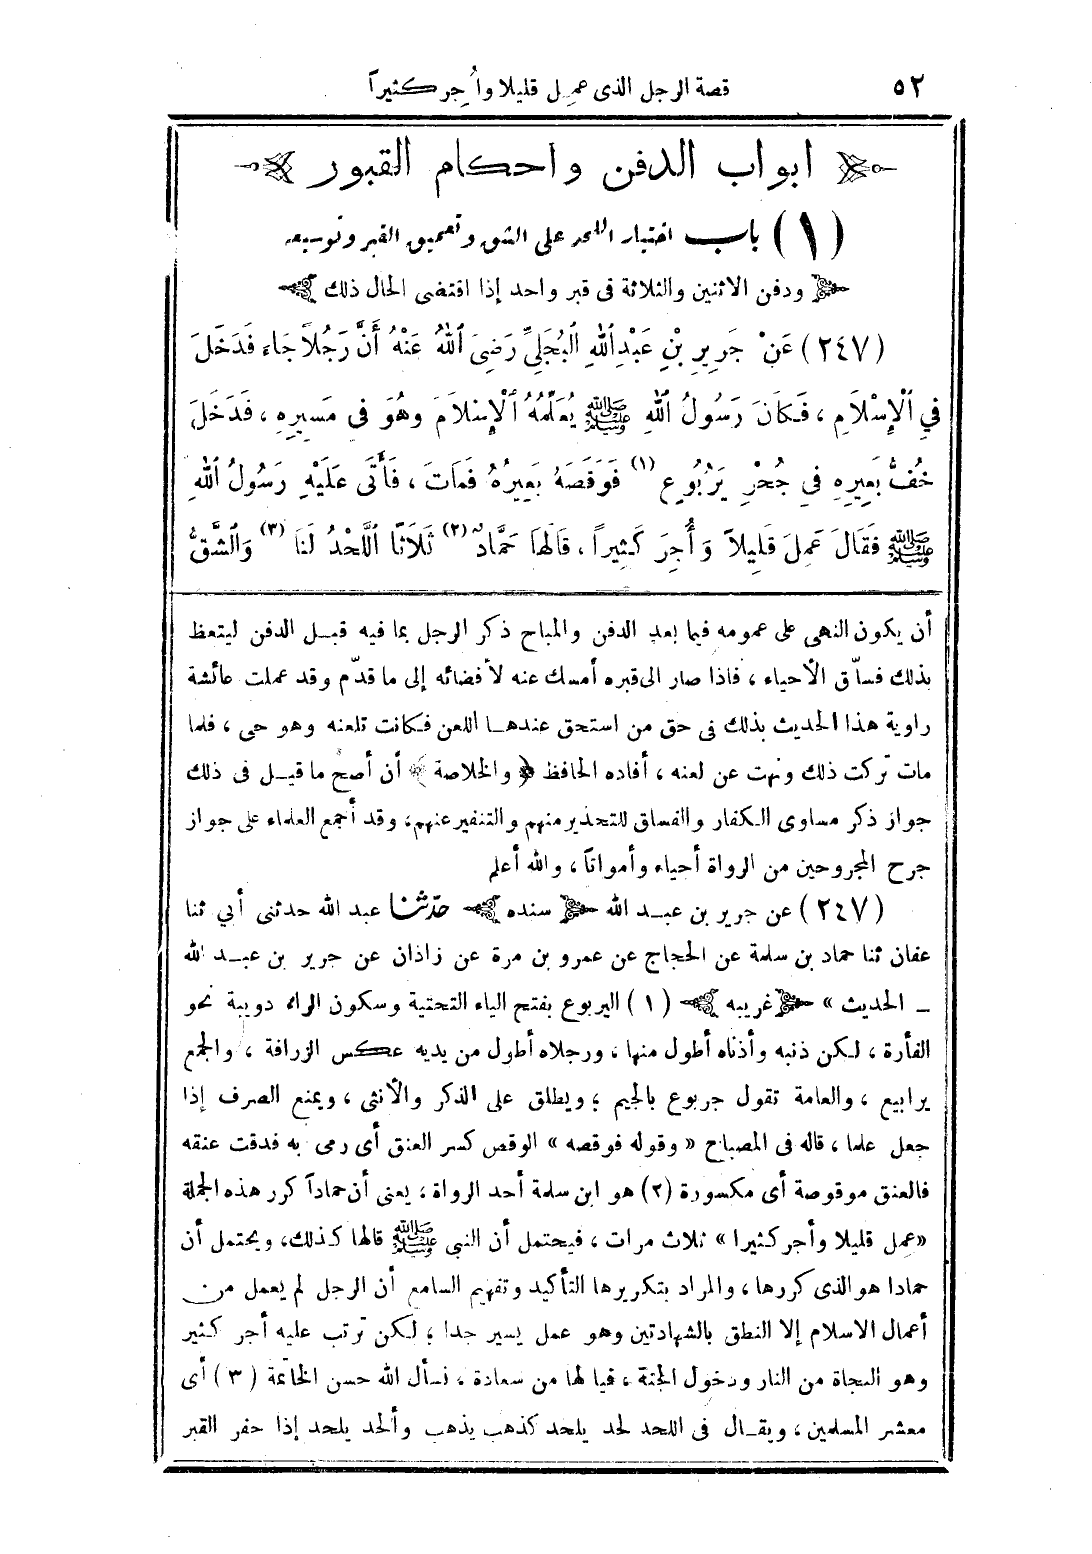 ٥٢ قصة الرجل الذى عمل قليلا وأُجر كثيراً
ابواب الدفن واحكام القبور
(١) باب اختيار اللحد على الشق وتعميق القبر وتوسيعه
ودفن الاثنين والثلاثة فى قبر واحد إذا اقتضى الحال ذلك
(٢٤٧) عَنْ جَرِيرِ بْنِ عَبْدِ اللهِ الْبُجَلِيِّ رَضِىَ اللهُ عَنْهُ أَنَّ رَجُلاً جَاءَ فَدَخَلَ
فِي الْإِسْلَامِ ، فَكَانَ رَسُولُ اللهِ ﷺ يُعَلِّمُهُ الْإِسْلَامَ وَهُوَ فِى مَسِيرِهِ ، فَدَخَلَ
خُفُّ بَعِيرِهِ فِي جُحْرِ يَرْبُوعٍ (١) فَوَقَصَهُ بَعِيرُهُ فَمَاتَ ، فَأَتَى عَلَيْهِ رَسُولُ اللهِ
ﷺ فَقَالَ عَمِلَ قَلِيلاً وَأُجِرَ كَثِيراً ، قَالَهَا حَمَّادٌ (٢) ثَلَاثًا اللَّحْدُ لَنَا (٣) وَالشَّقُّ
أن يكون النهى على عمومه فيما بعد الدفن والمباح ذكر الرجل بما فيه قبل الدفن ليتعظ
بذلك فساّق الأحياء ، فاذا صار الى قبره أمسك عنه لأفضائه إلى ما قدّم وقد عملت عائشة
راوية هذا الحديث بذلك فى حق من استحق عندها اللعن فكانت تلعنه وهو حى ، فلما
مات تركت ذلك ونهت عن لعنه ، أفاده الحافظ ﴿ والخلاصة ﴾ أن أصح ما قيل فى ذلك
جواز ذكر مساوى الكفار والفساق للتحذير منهم والتنفير عنهم، وقد أجمع العلماء على جواز
جرح المجروحين من الرواة أحياء وأمواتاً ، والله أعلم
(٢٤٧) عن جرير بن عبد الله سنده حدّثنا عبد الله حدثنى أبي ثنا
عفان ثنا حماد بن سلمة عن الحجاج عن عمرو بن مرة عن زاذان عن جرير بن عبد الله
ـ الحديث » غريبه (١) اليربوع بفتح الياء التحتية وسكون الراء دويبة نحو
الفأرة ، لكن ذنبه وأذناه أطول منها ، ورجلاه أطول من يديه عكس الزرافة ، والجمع
يرابيع ، والعامة تقول جربوع بالجيم ؛ ويطلق على الذكر والأنثى ، ويمنع الصرف إذا
جعل علما ، قاله فى المصباح « وقوله فوقصه » الوقص كسر العنق أى رمى به فدقت عنقه
فالعنق موقوصة أى مكسورة (٢) هو ابن سلمة أحد الرواة ، يعنى أن حماداً كرر هذه الجملة
«عمل قليلا وأجر كثيرا » ثلاث مرات ، فيحتمل أن النبى ﷺ قالها كذلك، ويحتمل أن
حمادا هو الذى كررها ، والمراد بتكريرها التأكيد وتفهيم السامع أن الرجل لم يعمل من
أعمال الاسلام إلا النطق بالشهادتين وهو عمل يسير جدا ؛ لكن ترتب عليه أجر كثير
وهو النجاة من النار ودخول الجنة ، فيا لها من سعادة ، نسأل الله حسن الخاتمة (٣) أى
معشر المسلمين ، ويقال فى اللحد لحد يلحد كذهب يذهب وألحد يلحد إذا حفر القبر